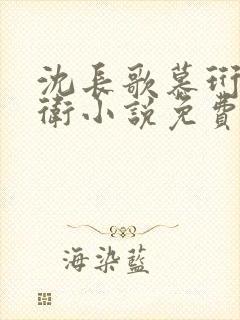 沈長歌慕珩
衛小說免費
海染藍